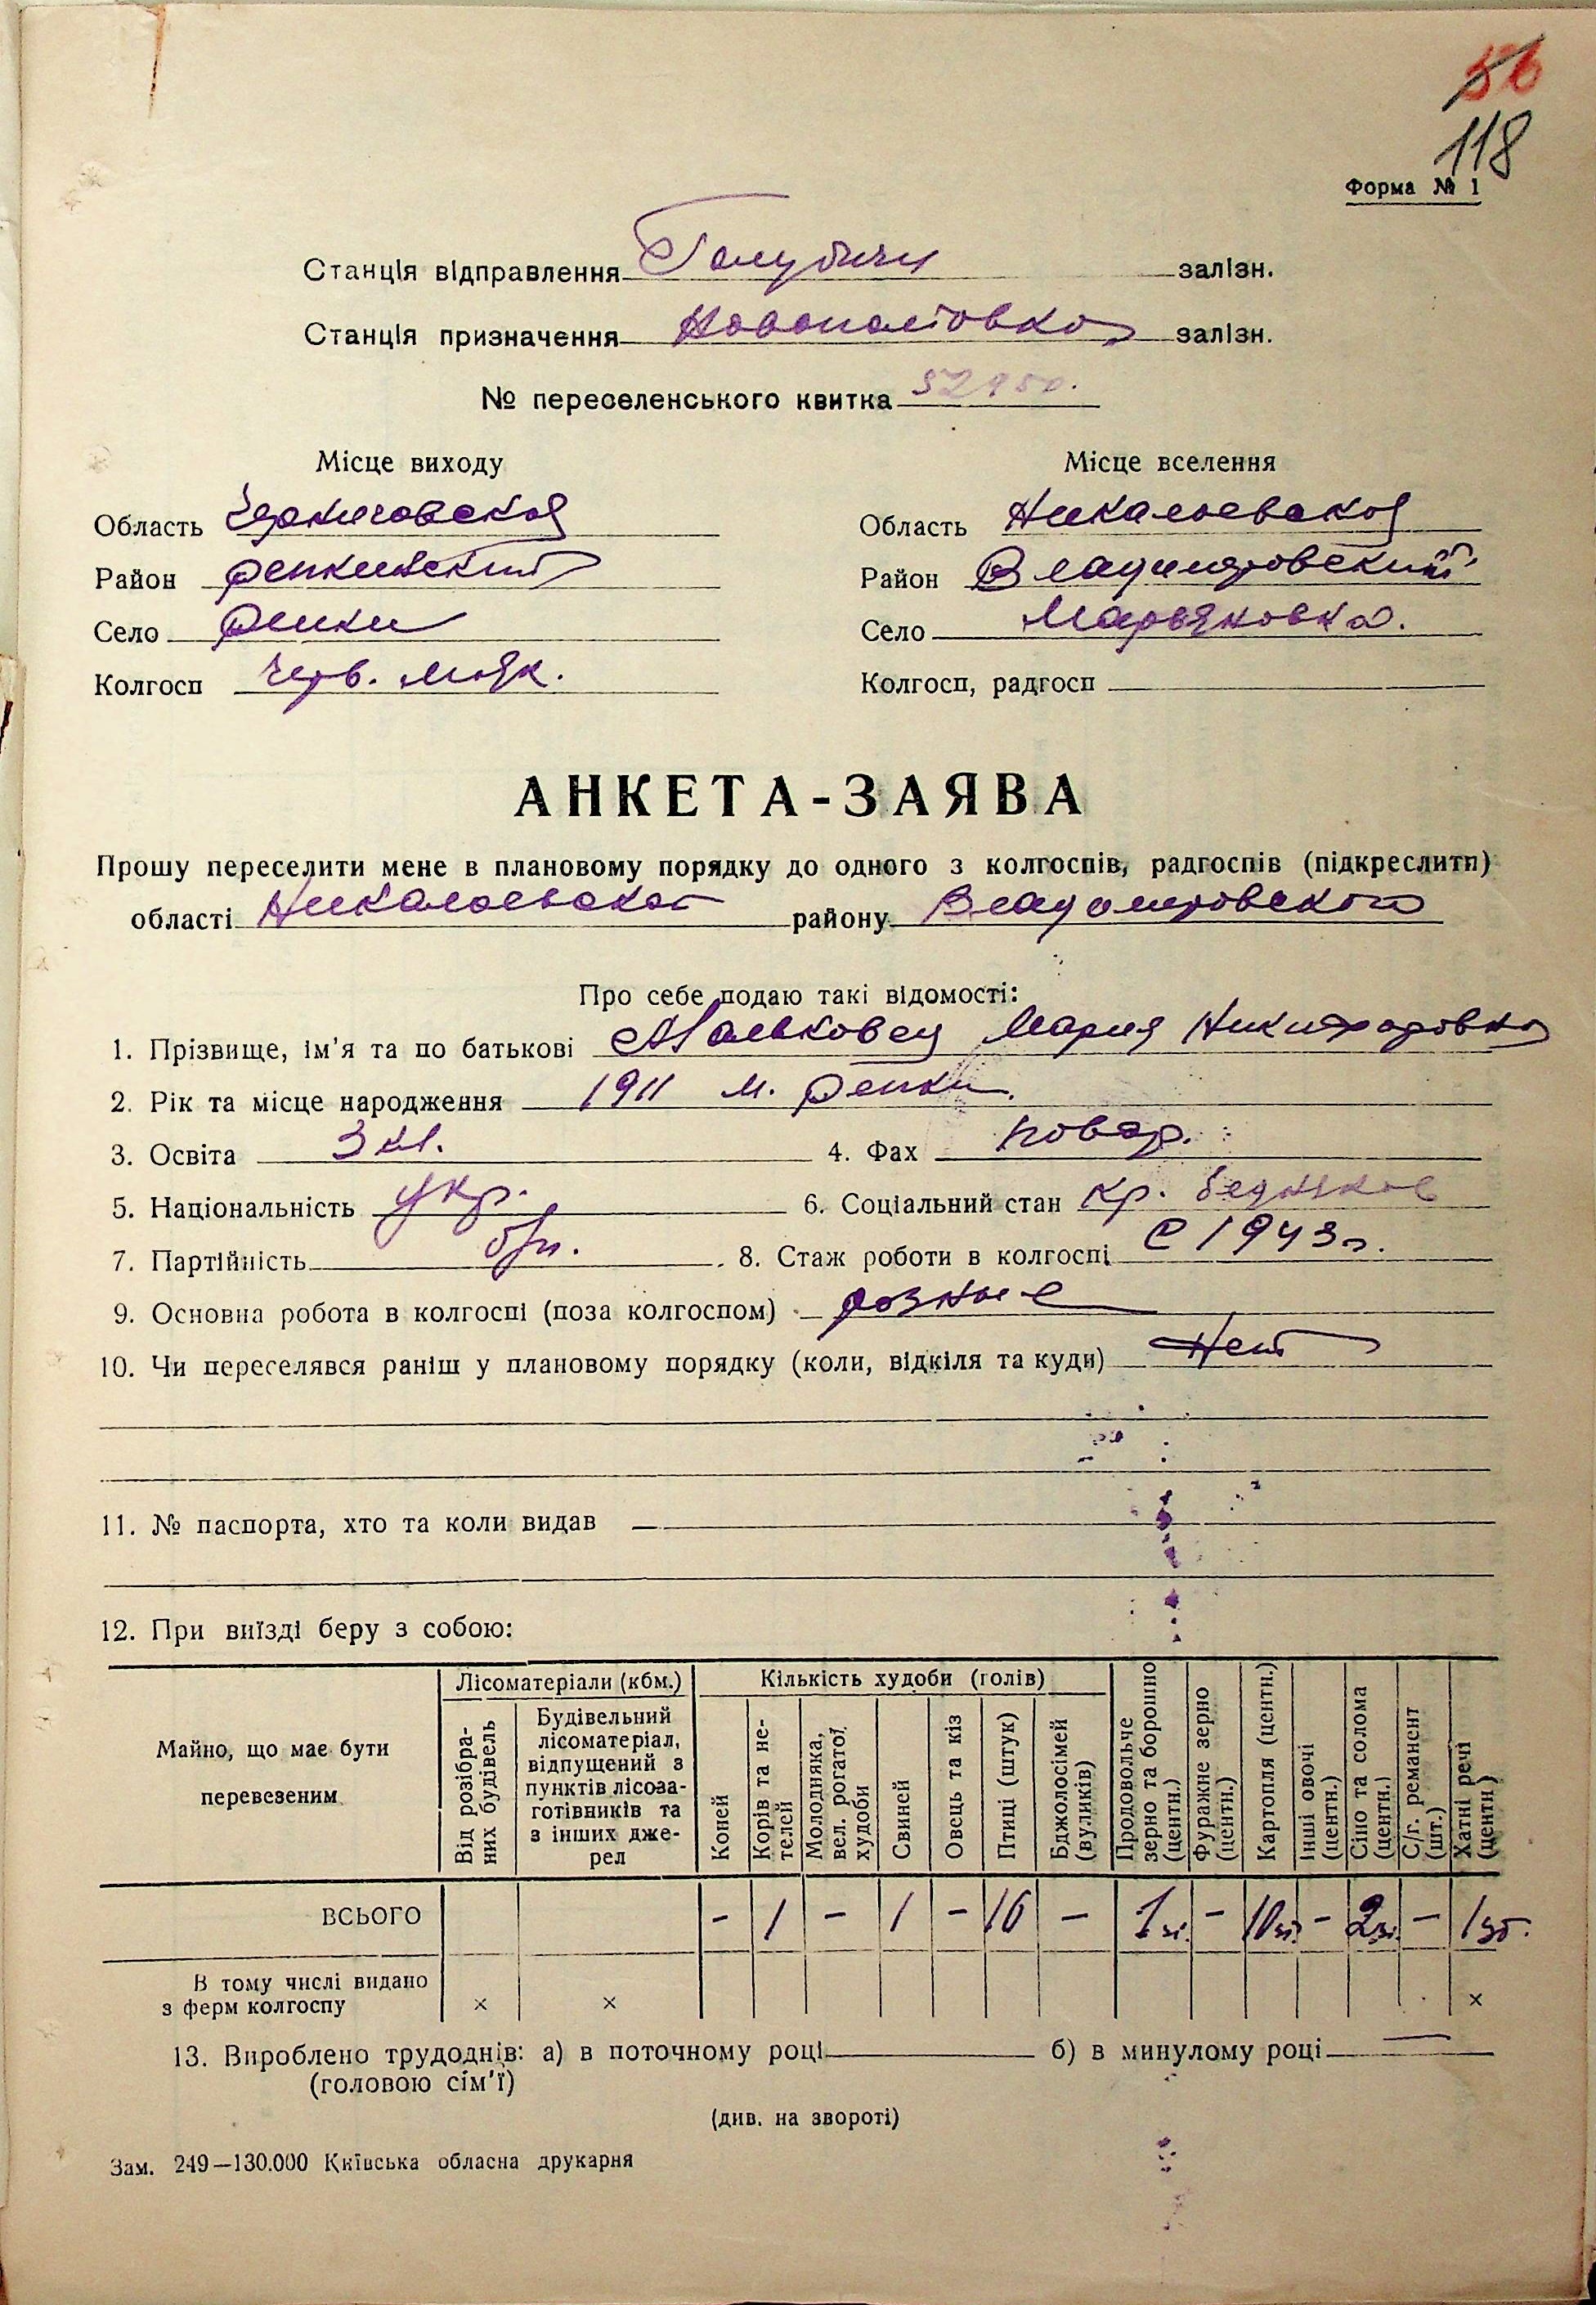 56
118
Форма № 1
Станція відправлення Голубичи залізн.
Станція призначення Новополтовка залізн.
№ переселенського квитка 52950.
Місце виходу Місце вселення
Область Черниговская Область Николаевская
Район Репкинский Район Владимировский
Село Репки Село Марьяновка.
Колгосп Черв. маяк. Колгосп, радгосп
АНКЕТА-ЗАЯВА
Прошу переселити мене в плановому порядку до одного з колгоспів, радгоспів (підкреслити)
області Николаевской району Владимировского
Про себе подаю такі відомості:
1. Прізвище, ім'я та по батькові Мальковец Мария Никифоровна
2. Рік та місце народження 1911 м. Репки.
3. Освіта 3 кл. 4. Фах повар.
5. Національність укр. 6. Соціальний стан кр. бедняков
7. Партійність б/п. 8. Стаж роботи в колгоспі с 1943 г.
9. Основна робота в колгоспі (поза колгоспом) разные
10. Чи переселявся раніш у плановому порядку (коли, відкіля та куди) Нет
11. № паспорта, хто та коли видав
12. При виїзді беру з собою:
Майно, що має бути перевезеним
Лісоматеріали (кбм.)
Від розібраних будівель
Будівельний лісоматеріал, відпущений з пунктів лісозаготівників та з інших джерел
Кількість худоби (голів)
Коней
Корів та нетелей
Молодняка, вел. рогатої худоби
Свиней
Овець та кіз
Птиці (штук)
Бджолосімей (вуликів)
Продовольче зерно та борошно (центн.)
Фуражне зерно (центн.)
Картопля (центн.)
Інші овочі (центн.)
Сіно та солома (центн.)
С/г. реманент (шт.)
Хатні речі (центн)
ВСЬОГО - 1 - 1 - 10 - 1 ц. - 10 ц. - 2 ц. - 1
В тому числі видано
з ферм колгоспу × × ×
13. Вироблено трудоднів: а) в поточному році б) в минулому році —
(головою сім'ї)
(див. на звороті)
Зам. 249—130.000 Київська обласна друкарня